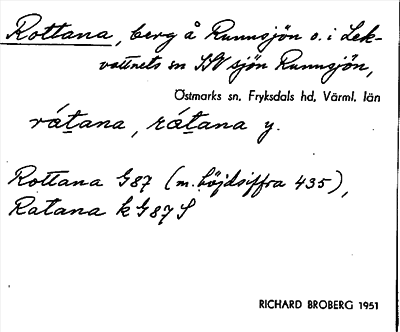 Rottana, berg å Runnsjön o. i Lek-
vattnets sn SV sjön Runnsjön,
Östmarks sn, Fryksdals hd, Värml. län
rátana, rátana y.
Rottana G87 (m. höjdsiffra 435),
Ratana k G87 S
RICHARD BROBERG 1951